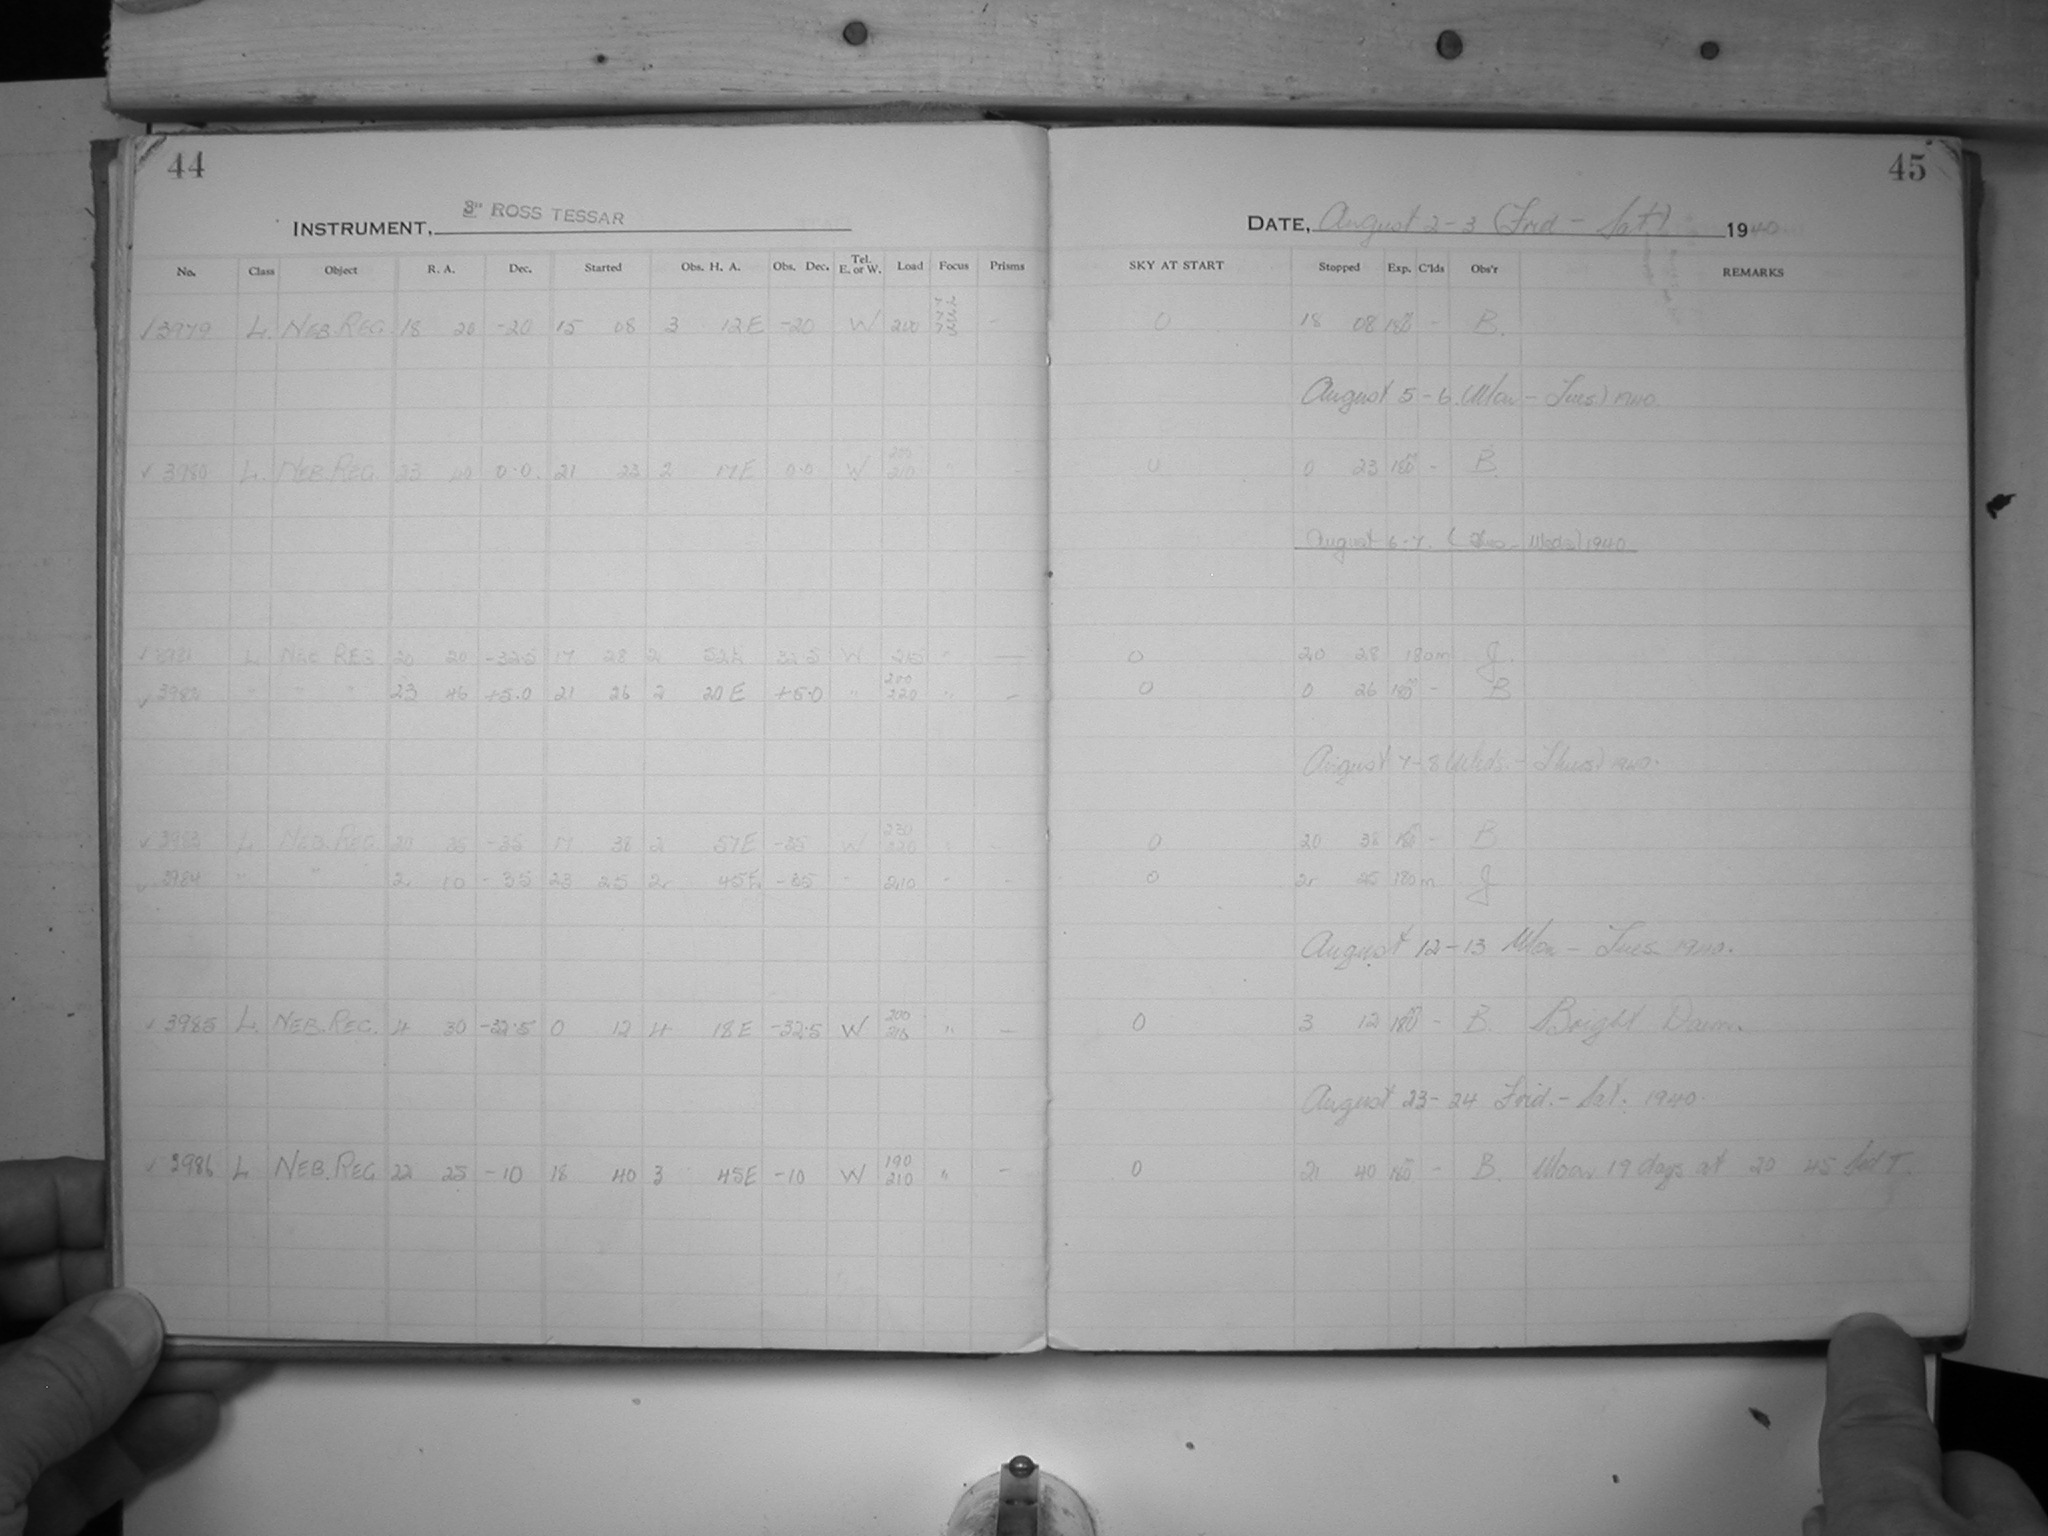 44
3" ROSS TESSAR
INSTRUMENT,
No. Class Object R. A. Dec. Started Obs. H. A. Obs. Dec. Tel. E. or W. Load Focus Prisms
✓3979 L. NEB.REG. 18 20 -20 15 08 3 12E -20 W 200 -
✓ 3980 L. NEB.REG. 23 40 0.0. 21 23 2 17E 0.0 W 200 210 " -
✓3981 L NEB REG 20 20 -32.5 17 28 2 52E 32.5 W 215 " —
✓3982 " " " 23 46 +5.0 21 26 2 20E +5.0 " 200 220 " -
✓3983 L NEB.REG 20 35 -35 17 38 2 57E -35 W 230 220 "
✓3984 " " 2 10 -35 23 25 2 45E -35 " 210 " -
✓3985 L. NEB.REG. 4 30 -32.5 0 12 4 18E -32.5 W 200 " —
✓3986 L NEB.REG 22 25 -10 18 40 3 45E -10 W 190 210 " -
45
DATE, August 2-3 (Frid - Sat) 1940
SKY AT START Stopped Exp. C'lds Obs'r REMARKS
0 18 08 180 - B.
August 5-6 (Mon - Tues) 1940.
0 0 23 180 - B.
August 6-7. (Tues - Weds) 1940
0 20 28 180m J.
0 0 26 180 - B
August 7-8 (Weds. - Thurs) 1940.
0 20 38 180 - B
0 2 25 180m J
August 12-13 Mon - Tues 1940.
0 3 12 180 - B Bright Dawn.
August 23-24 Frid. - Sat. 1940.
0 21 40 180 - B. Moon 19 days at 20 45 Sid T.